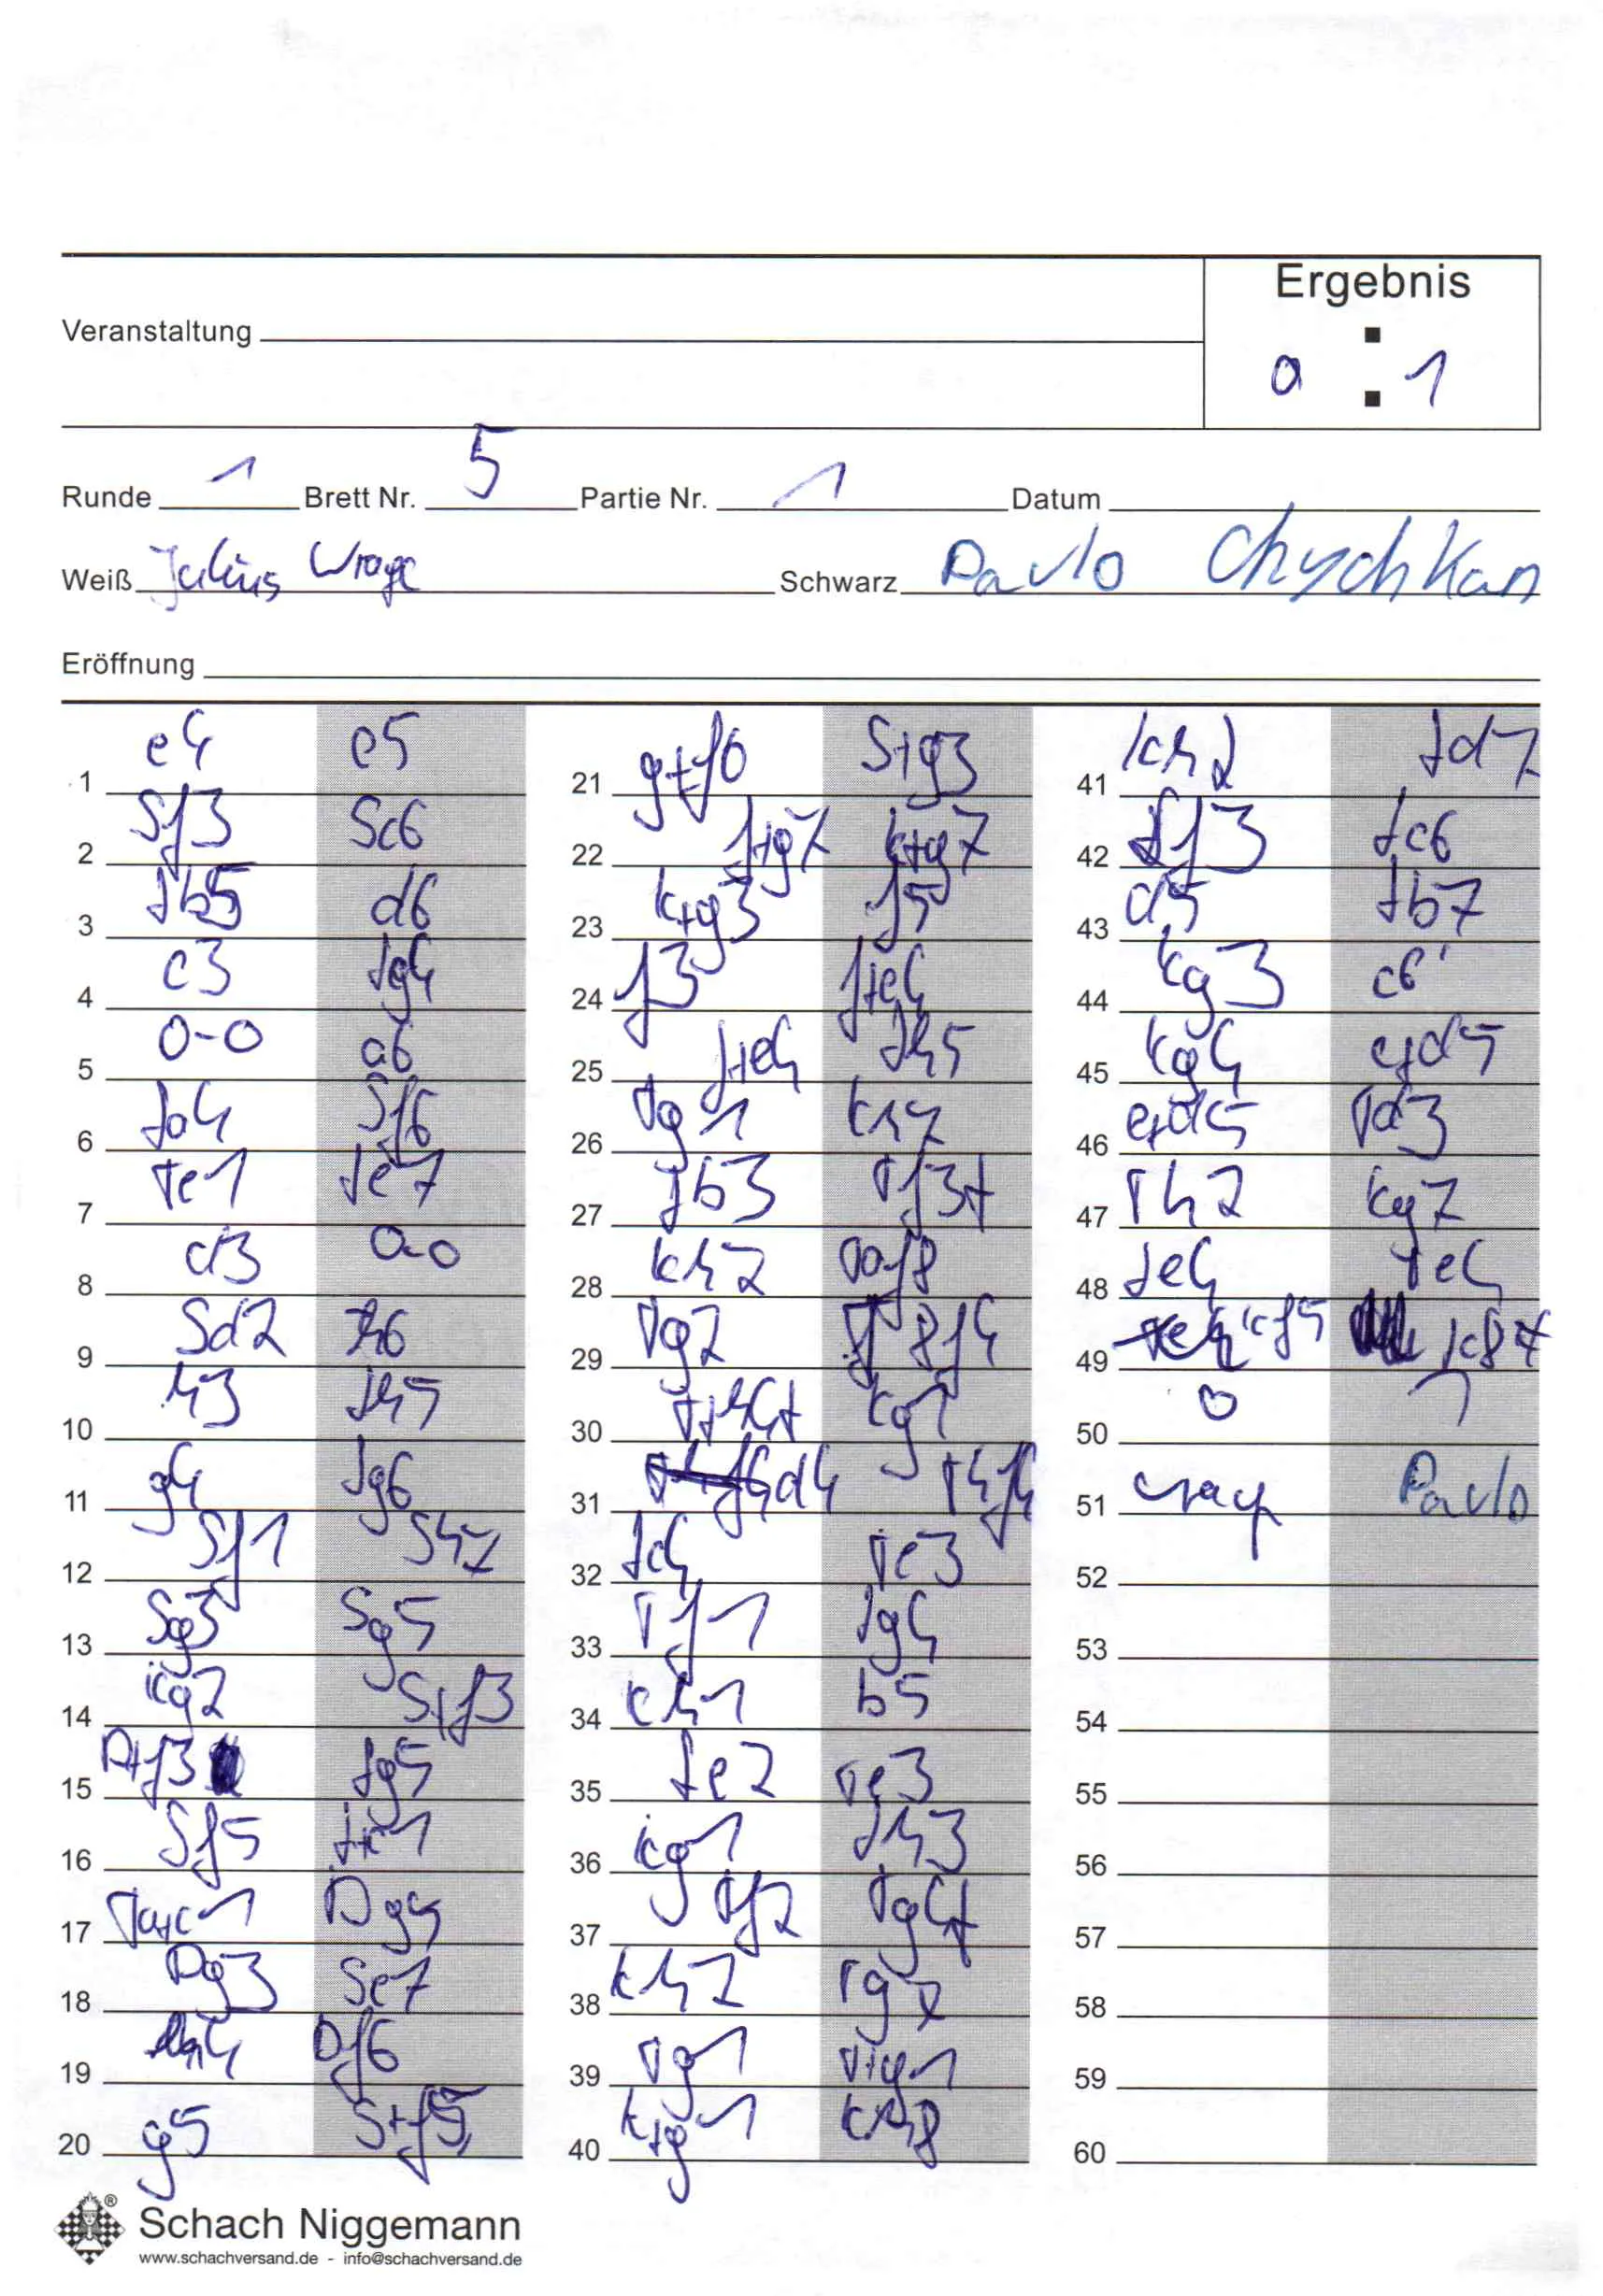 Ergebnis
Veranstaltung
0 : 1
Runde 1 Brett Nr. 5 Partie Nr. 1 Datum
Weiß Julius Wrage Schwarz Pavlo Chychkan
Eröffnung
1 e4 e5
2 Sf3 Sc6
3 Lb5 d6
4 c3 Lg4
5 0-0 a6
6 La4 Sf6
7 Te1 Le7
8 d3 0-0
9 Sd2 h6
10 h3 Lh5
11 g4 Lg6
12 Sf1 Sh7
13 Sg3 Sg5
14 Kg2 S+f3
15 D+f3 Lg5
16 Sf5 L+c1
17 Ta+c1 Dg5
18 Dg3 Se7
19 h4 Df6
20 g5 S+f5
21 g+f6 S+g3
22 f+g7 K+g7
23 K+g3 f5
24 f3 f+e4
25 f+e4 Lh5
26 Tg1 Kh7
27 Lb3 Tf3+
28 Kh2 Taf8
29 Tg2 T8f4
30 T+h4+ Kg7
31 d4 Thf4
32 Lc4 Te3
33 Tf1 Lg4
34 Kh1 b5
35 Le2 Te3
36 Kg1 Lh3
37 Tf2 Tg4+
38 Kh2 Tg2
39 Tg1 T+g1
40 K+g1 Kh8
41 Kh2 Ld7
42 Lf3 Lc6
43 d5 Lb7
44 Kg3 c6
45 Kg4 c+d5
46 e+d5 Td3
47 Th2 Kg7
48 Le4 Te4
49 Kf5 K8+
50 0 1
51 Wrage Pavlo
52
53
54
55
56
57
58
59
60
® Schach Niggemann
www.schachversand.de - info@schachversand.de